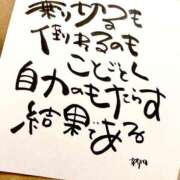 乗り切るも
倒れるのも
ことごとく
自力のもたらす
結果である